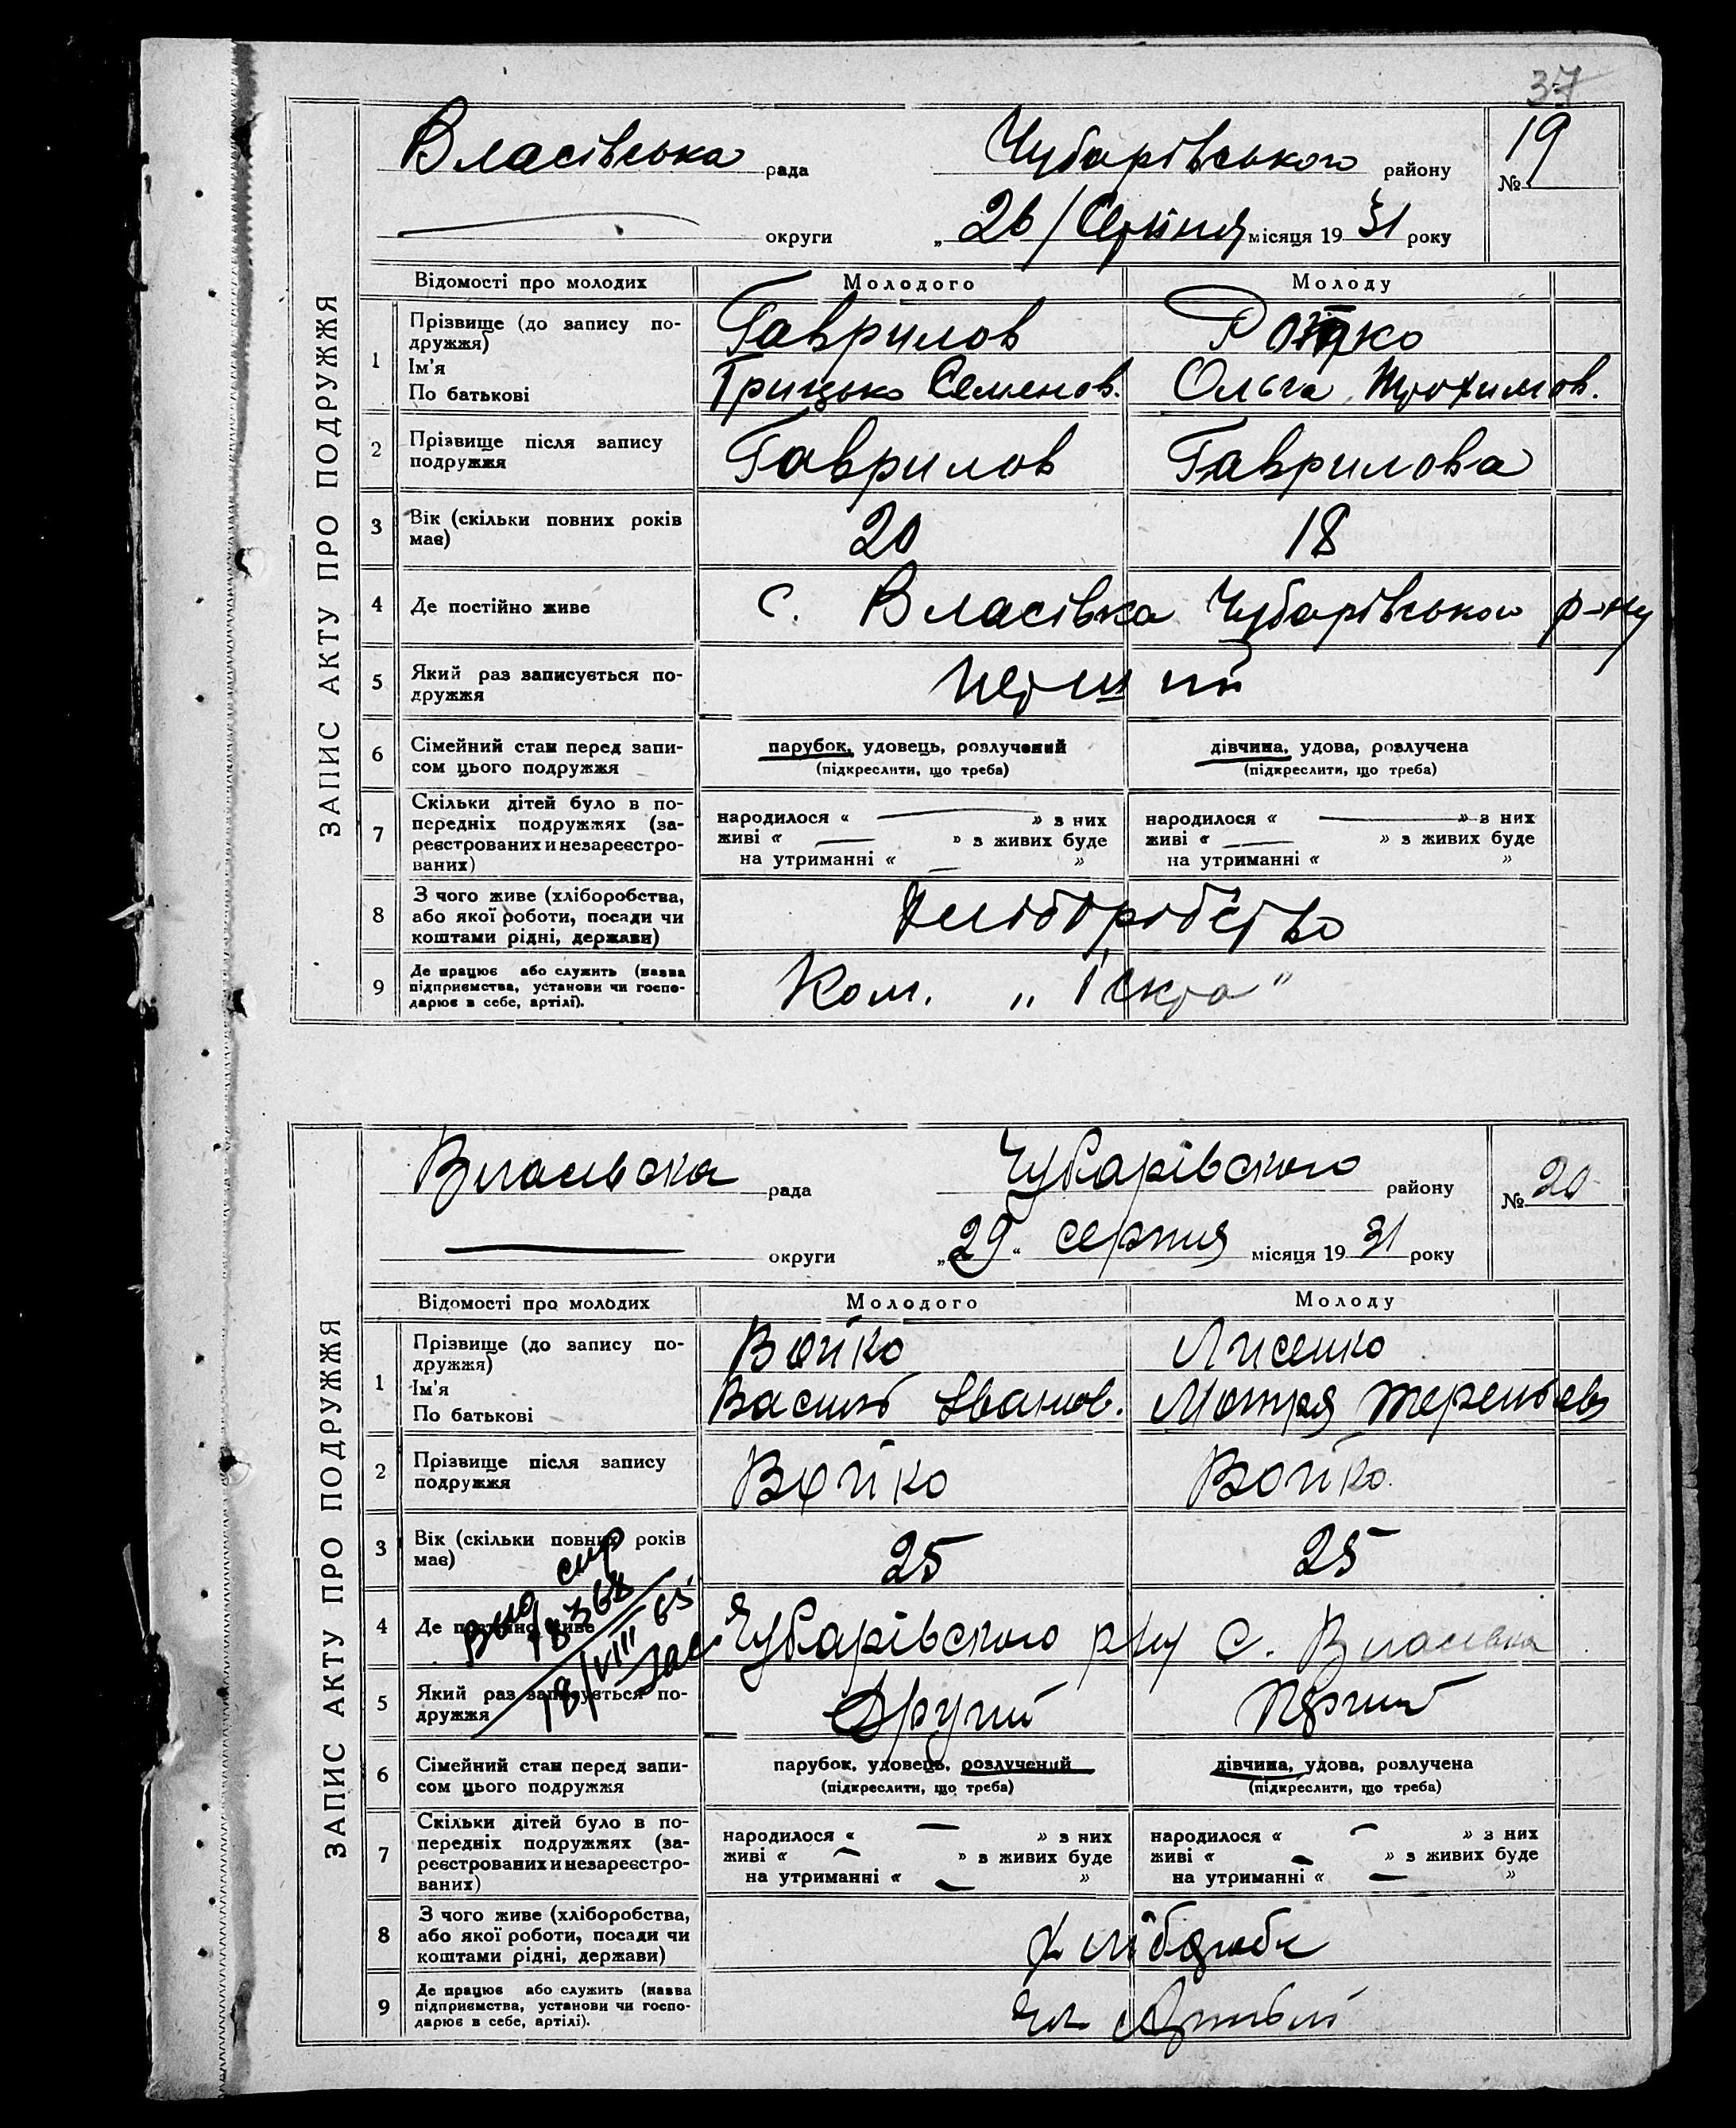 37
ЗАПИС АКТУ ПРО ПОДРУЖЖЯ
Власівська рада Чубарівського району № 19
округи „26/Серпня місяця 1931 року
Відомості про молодих Молодого Молоду
1 Прізвище (до запису по-
дружжя) Гаврилов
Ім'я
По батькові Грицько Семенов. Ольга Трохимов.
2 Прізвище після запису
подружжя Гаврилов Гаврилова
3 Вік (скільки повних років
має) 20 18
4 Де постійно живе с. Власівка Чубарівського р-ну
5 Який раз записується по-
дружжя перший
6 Сімейний стан перед запи-
сом цього подружжя парубок, удовець, розлучений дівчина, удова, розлучена
(підкреслити, що треба) (підкреслити, що треба)
7 Скільки дітей було в по-
передніх подружжях (за-
реєстрованих и незареєстро-
ваних)
народилося « » з них народилося « » з них
живі « » з живих буде живі « » з живих буде
на утриманні « » на утриманні « »
8 З чого живе (хліборобства,
або якої роботи, посади чи
коштами рідні, держави) Хліборобство
9 Де працює або служить (назва
підприємства, установи чи госпо-
дарює в себе, артілі). Ком. „Іскра"
ЗАПИС АКТУ ПРО ПОДРУЖЖЯ
Власівска рада Чубарівского району № 20
округи „29" серпня місяця 1931 року
Відомості про молодих Молодого Молоду
1 Прізвище (до запису по-
дружжя) Бойко Лисенко
Ім'я
По батькові Василь Іванов. Мотря Терентьев
2 Прізвище після запису
подружжя Бойко Бойко
3 Вік (скільки повних років
має) 25 25
4 Де постійно живе Чубарівского р-ну с. Власівка
18/VIII 65
5 Який раз записується по-
дружжя Другий Перший
6 Сімейний стан перед запи-
сом цього подружжя парубок, удовець, розлучений дівчина, удова, розлучена
(підкреслити, що треба) (підкреслити, що треба)
7 Скільки дітей було в по-
передніх подружжях (за-
реєстрованих и незареєстро-
ваних)
народилося « » з них народилося « » з них
живі « » з живих буде живі « » з живих буде
на утриманні « » на утриманні « »
8 З чого живе (хліборобства,
або якої роботи, посади чи
коштами рідні, держави)
9 Де працює або служить (назва
підприємства, установи чи госпо-
дарює в себе, артілі).